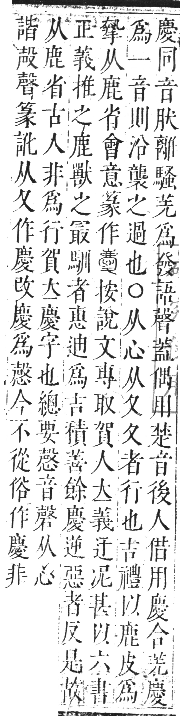 慶同音肰離騷羌爲發語聲蓋偶用楚音後人借用慶合羌慶
爲一音則沿襲之過也○从心从夂夂者行也吉禮以鹿皮爲
摰从鹿省會意篆作按說文專取賀人大義迂泥甚以六書
正義推之鹿獸之最馴者惠迪爲吉積善餘慶逆惡者反是故
从鹿省古人非爲行賀大慶字也總要慦音磬从心
諧殸聲篆訛从夂作慶改慶爲慦今不從俗作慶非